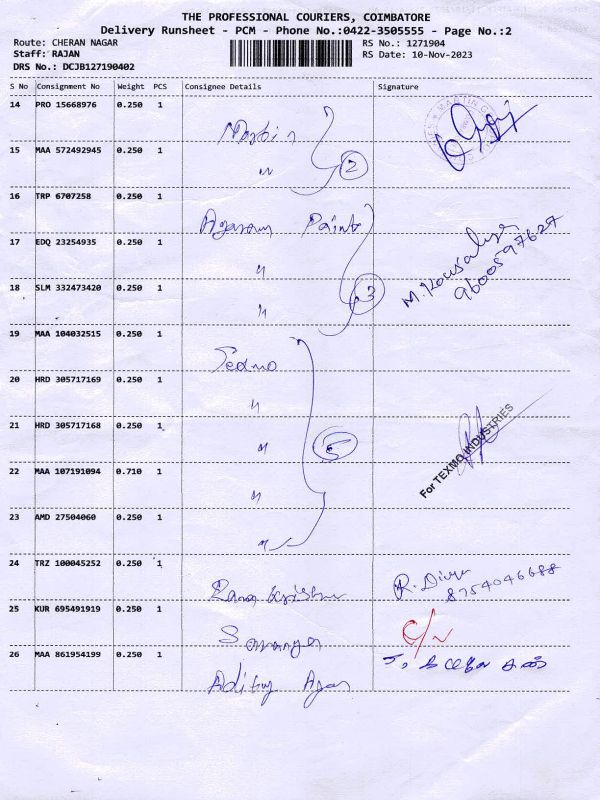 THE PROFESSIONAL COURIERS, COIMBATORE
Delivery Runsheet - PCM - Phone No.:0422-3505555 - Page No.:2
Route: CHERAN NAGAR RS No.: 1271904
Staff: RAJAN RS Date: 10-Nov-2023
DRS No.: DCJB127190402
S No Consignment No Weight PCS Consignee Details Signature
14 PRO 15668976 0.250 1
15 MAA 572492945 0.250 1
2
16 TRP 6707258 0.250 1
Agaram Paints
17 EDQ 23254935 0.250 1
18 SLM 332473420 0.250 1
3
M. Kousalya
9600597627
19 MAA 104032515 0.250 1
20 HRD 305717169 0.250 1
21 HRD 305717168 0.250 1
5
22 MAA 107191094 0.710 1
For TEXMO INDUSTRIES
23 AMD 27504060 0.250 1
24 TRZ 100045252 0.250 1
R. Divya
8754046688
25 KUR 695491919 0.250 1
C/N
26 MAA 861954199 0.250 1